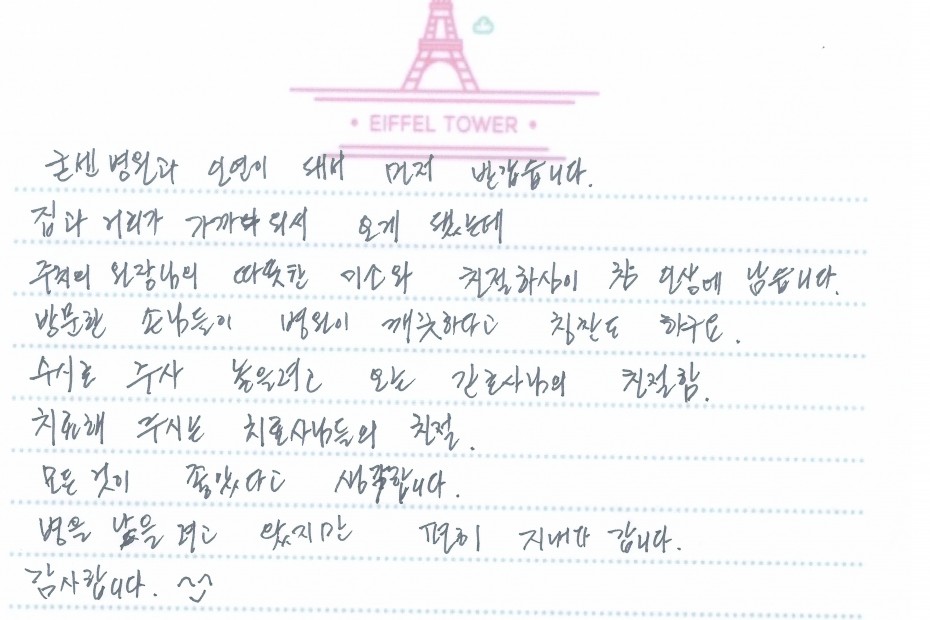 • EIFFEL TOWER •
굳센병원과 인연이 돼서 먼저 반갑습니다.
집과 거리가 가까워서 오게 됐는데
원장님의 따뜻한 미소와 친절하심이 참 인상에 남습니다.
방문한 손님들이 병원이 깨끗하다고 칭찬도 하구요.
수시로 주사 놓을려고 오는 간호사님의 친절함.
치료해 주시는 치료사님들의 친절.
모든 것이 좋았다고 생각합니다.
병을 낳을려고 왔지만 편히 지내다 갑니다.
감사합니다. ^^